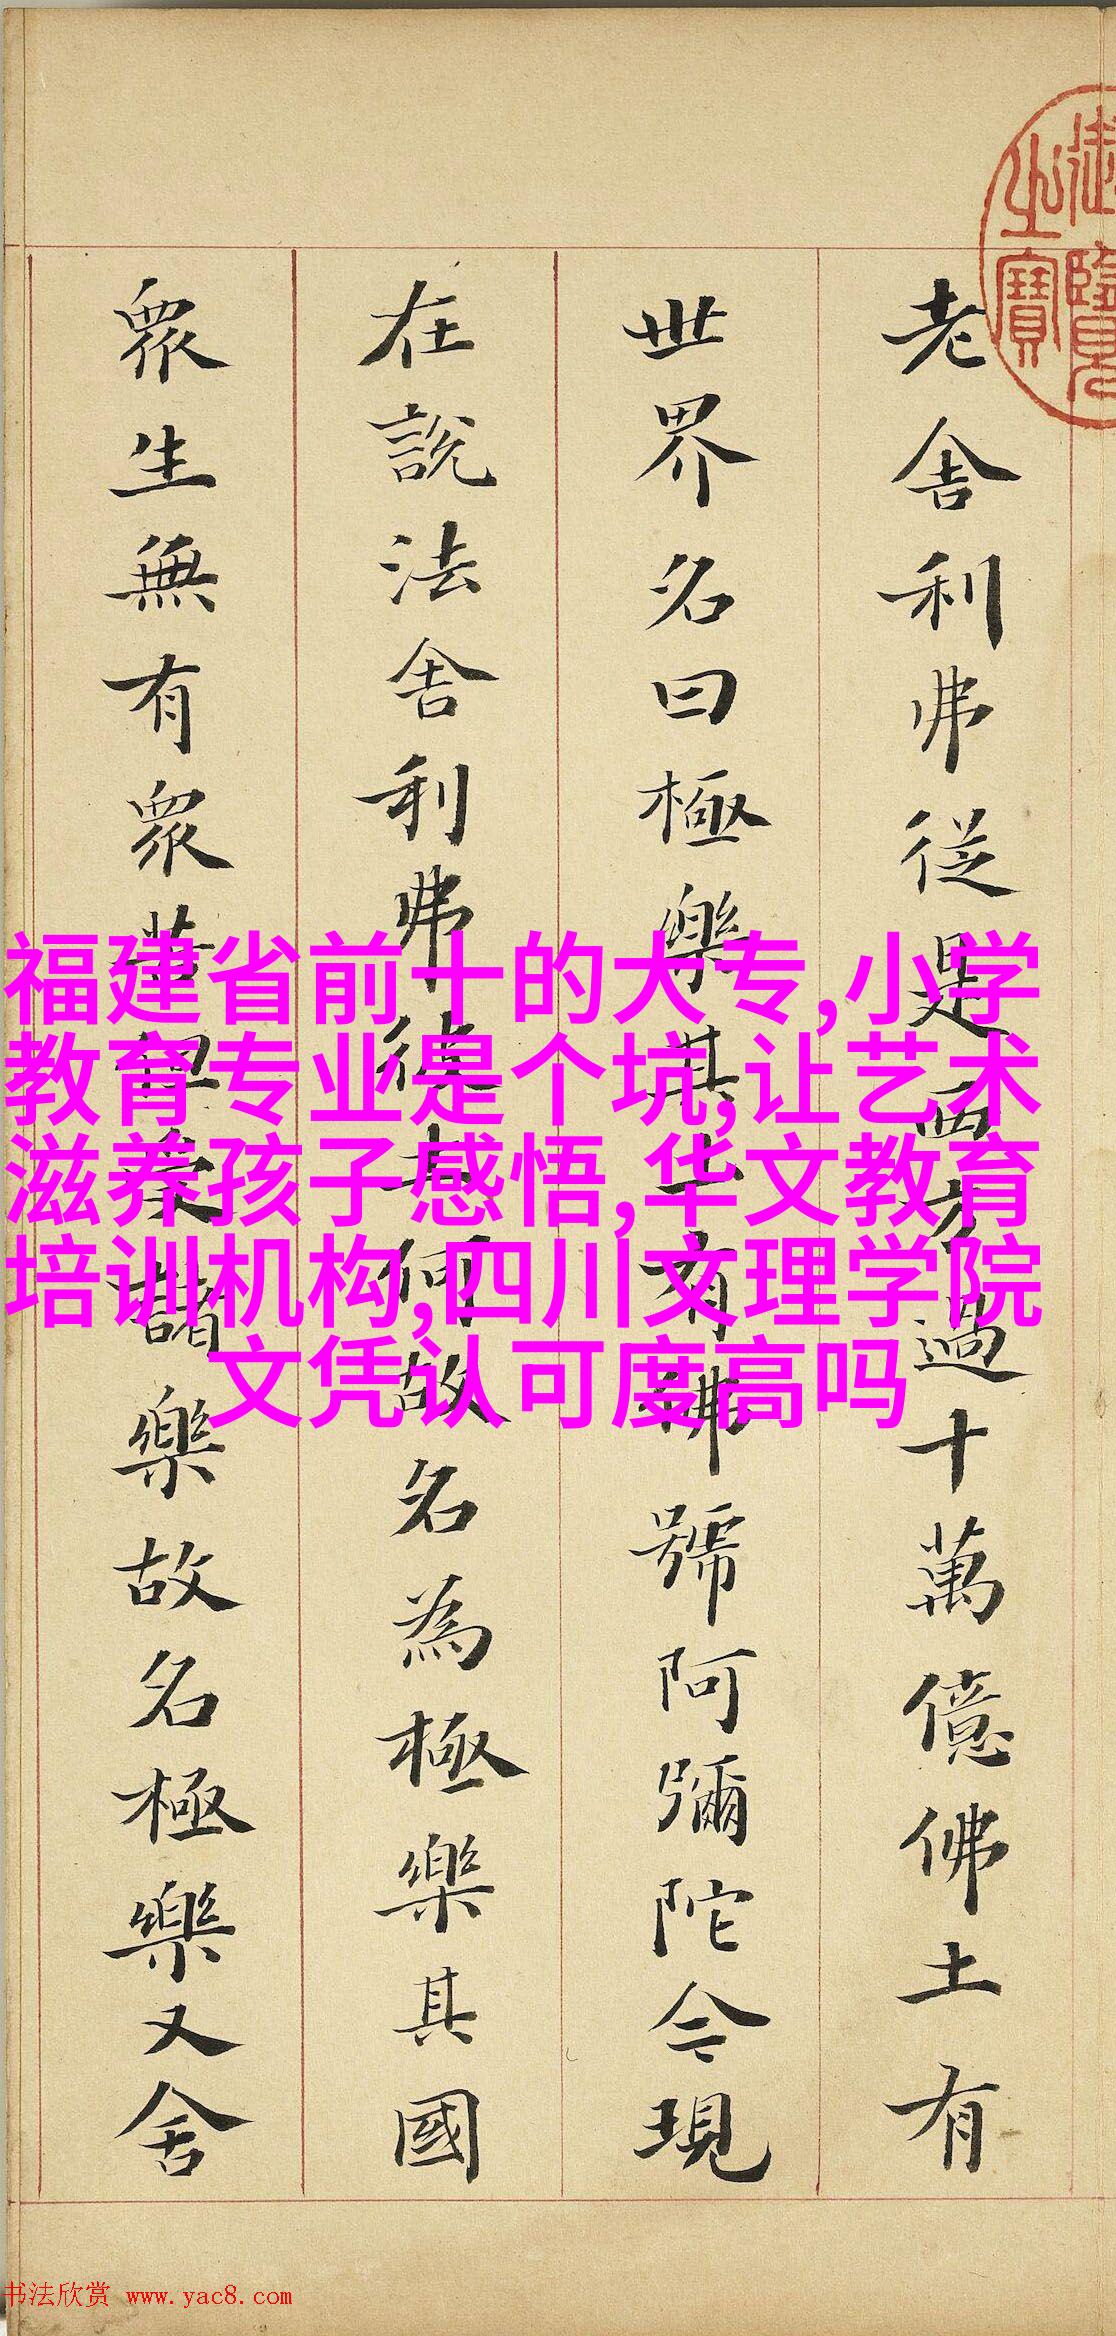 御覽之寶
老舍利弗從是西方過十萬億佛土有
世界名曰極樂其土有佛號阿彌陀今現
在說法舍利弗彼土何故名為極樂其國
眾生無有眾苦但受諸樂故名極樂又舍
福建省前十的大专,小学
教育专业是个坑,让艺术
滋养孩子感悟,华文教育
培训机构,四川文理学院
文凭认可度高吗
书法欣赏 www.yac8.com